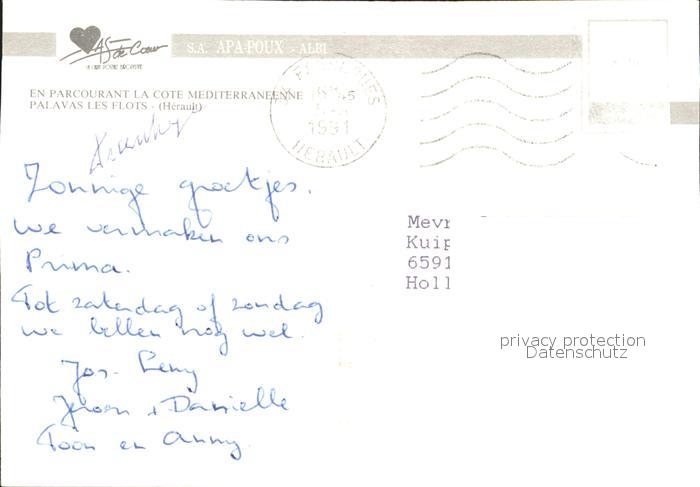 AS de Cœur
S.A. APA-POUX - ALBI
EN PARCOURANT LA COTE MEDITERRANEENNE
PALAVAS LES FLOTS - (Hérault)
1991
HERAULT
Zonnige groetjes.
We vermaken ons
Prima.
Tot zaterdag of zondag
we bellen nog wel.
Jos - Leny
Jeroen + Daniëlle
Toon en Anny.
Mevr
Kuip
6591
Holl
privacy protection
Datenschutz